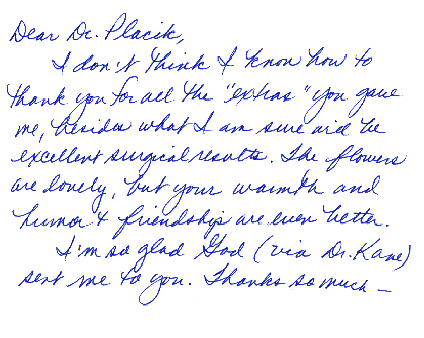 Dear Dr. Placik,
I don't think I know how to
thank you for all the "extras" you gave
me, besides what I am sure will be
excellent surgical results. The flowers
are lovely, but your warmth and
humor & friendship are even better.
I'm so glad God (via Dr. Kane)
sent me to you. Thanks so much —